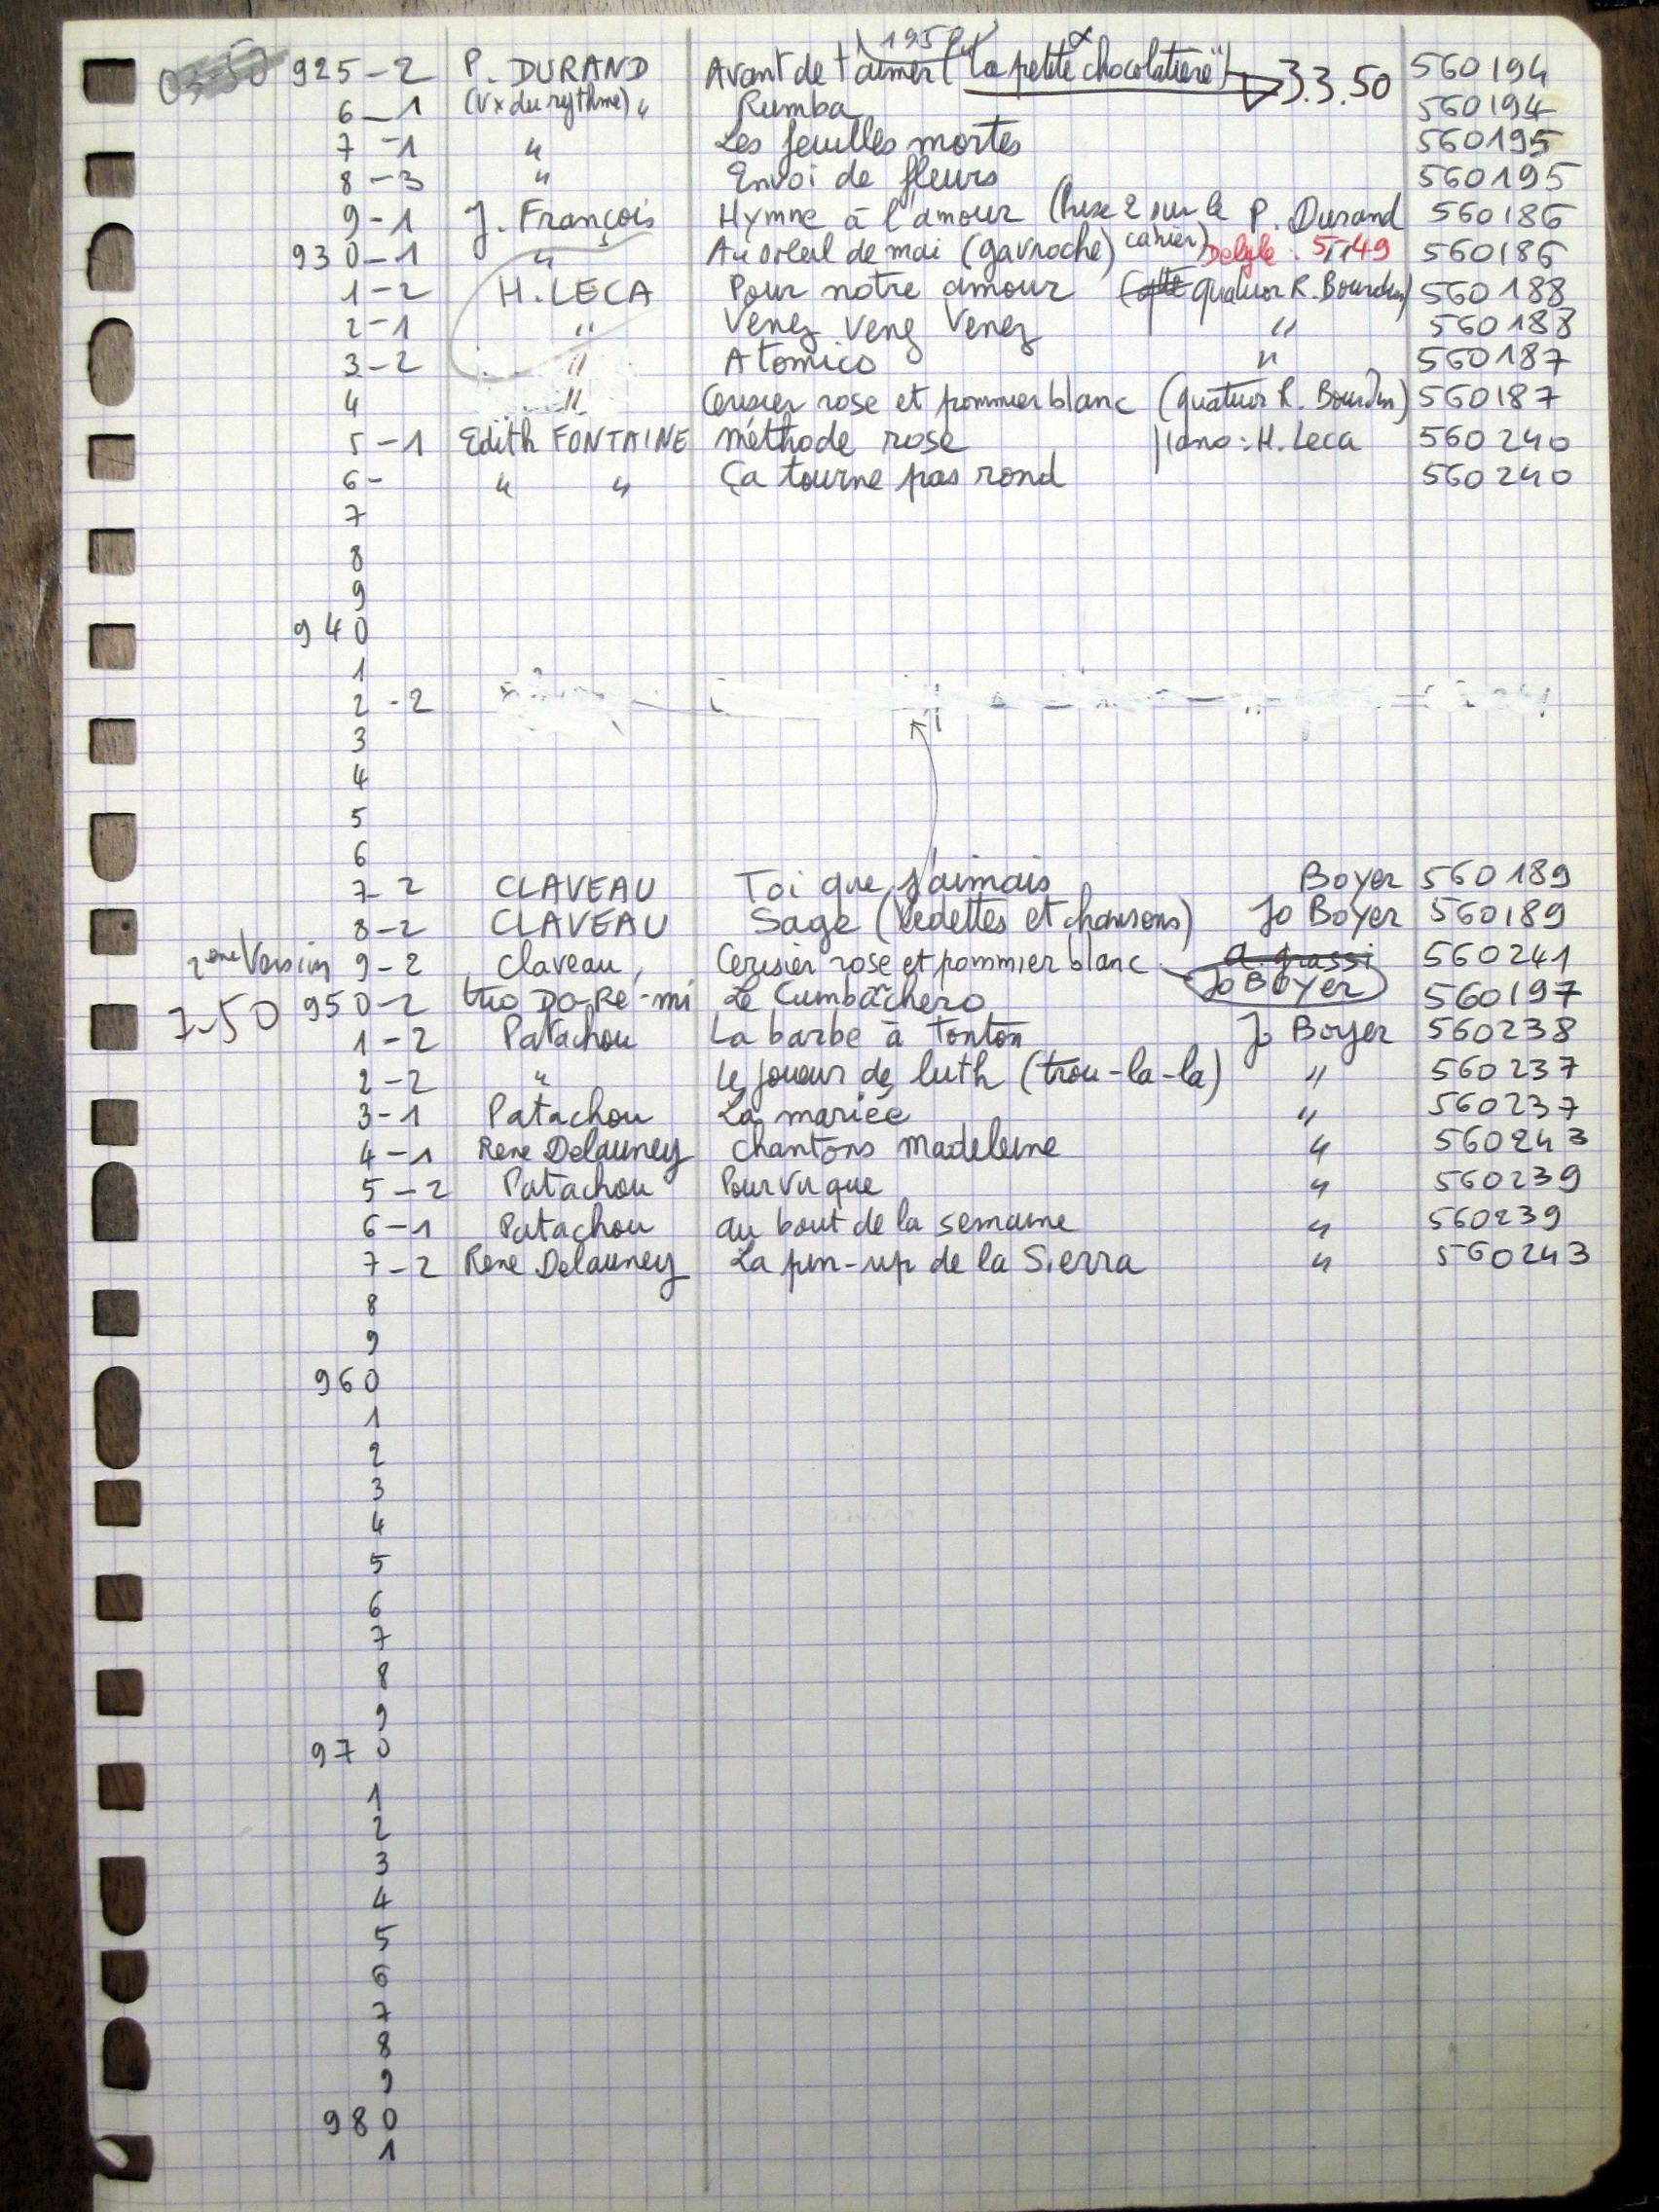 195
03-50 925-2 P. DURAND Avant de t'aimer ("La petite chocolatière") 3.3.50 560194
6-1 (Vx du rythme) " Rumba 560194
7-1 " Les feuilles mortes 560195
8-3 " Envoi de fleurs 560195
9-1 J. François Hymne à l'amour (Prise 2 sur le P. Durand 560186
cahier)
930-1 " Au soleil de mai (gavroche) Delyle : 5-11-49 560186
1-2 H. LECA Pour notre amour quatuor R. Bourdin) 560188
2-1 " Venez Venez Venez " 560188
3-2 " Atomico " 560187
4 " Cerisier rose et pommier blanc (quatuor R. Bourdin) 560187
5-1 Edith FONTAINE méthode rose piano : H. Leca 560240
6- " " Ça tourne pas rond 560240
7
8
9
940
1
2-2
3
4
5
6
7-2 CLAVEAU Toi que j'aimais Boyer 560189
8-2 CLAVEAU Sage (Vedettes et chansons) Jo Boyer 560189
2eme Version 9-2 Claveau Cerisier rose et pommier blanc a. grassi 560241
Jo BOYER
7-50 950-2 trio DO-Ré-mi Le Cumbachero 560197
1-2 Patachou La barbe à Tonton Jo Boyer 560238
2-2 " Le joueur de luth (trou-la-la) " 560237
3-1 Patachou La mariée " 560237
4-1 René Delauney Chantons Madeleine " 560243
5-2 Patachou Pourvu que " 560239
6-1 Patachou au bout de la semaine " 560239
7-2 René Delauney La pin-up de la Sierra " 560243
8
9
960
1
2
3
4
5
6
7
8
9
970
1
2
3
4
5
6
7
8
9
980
1